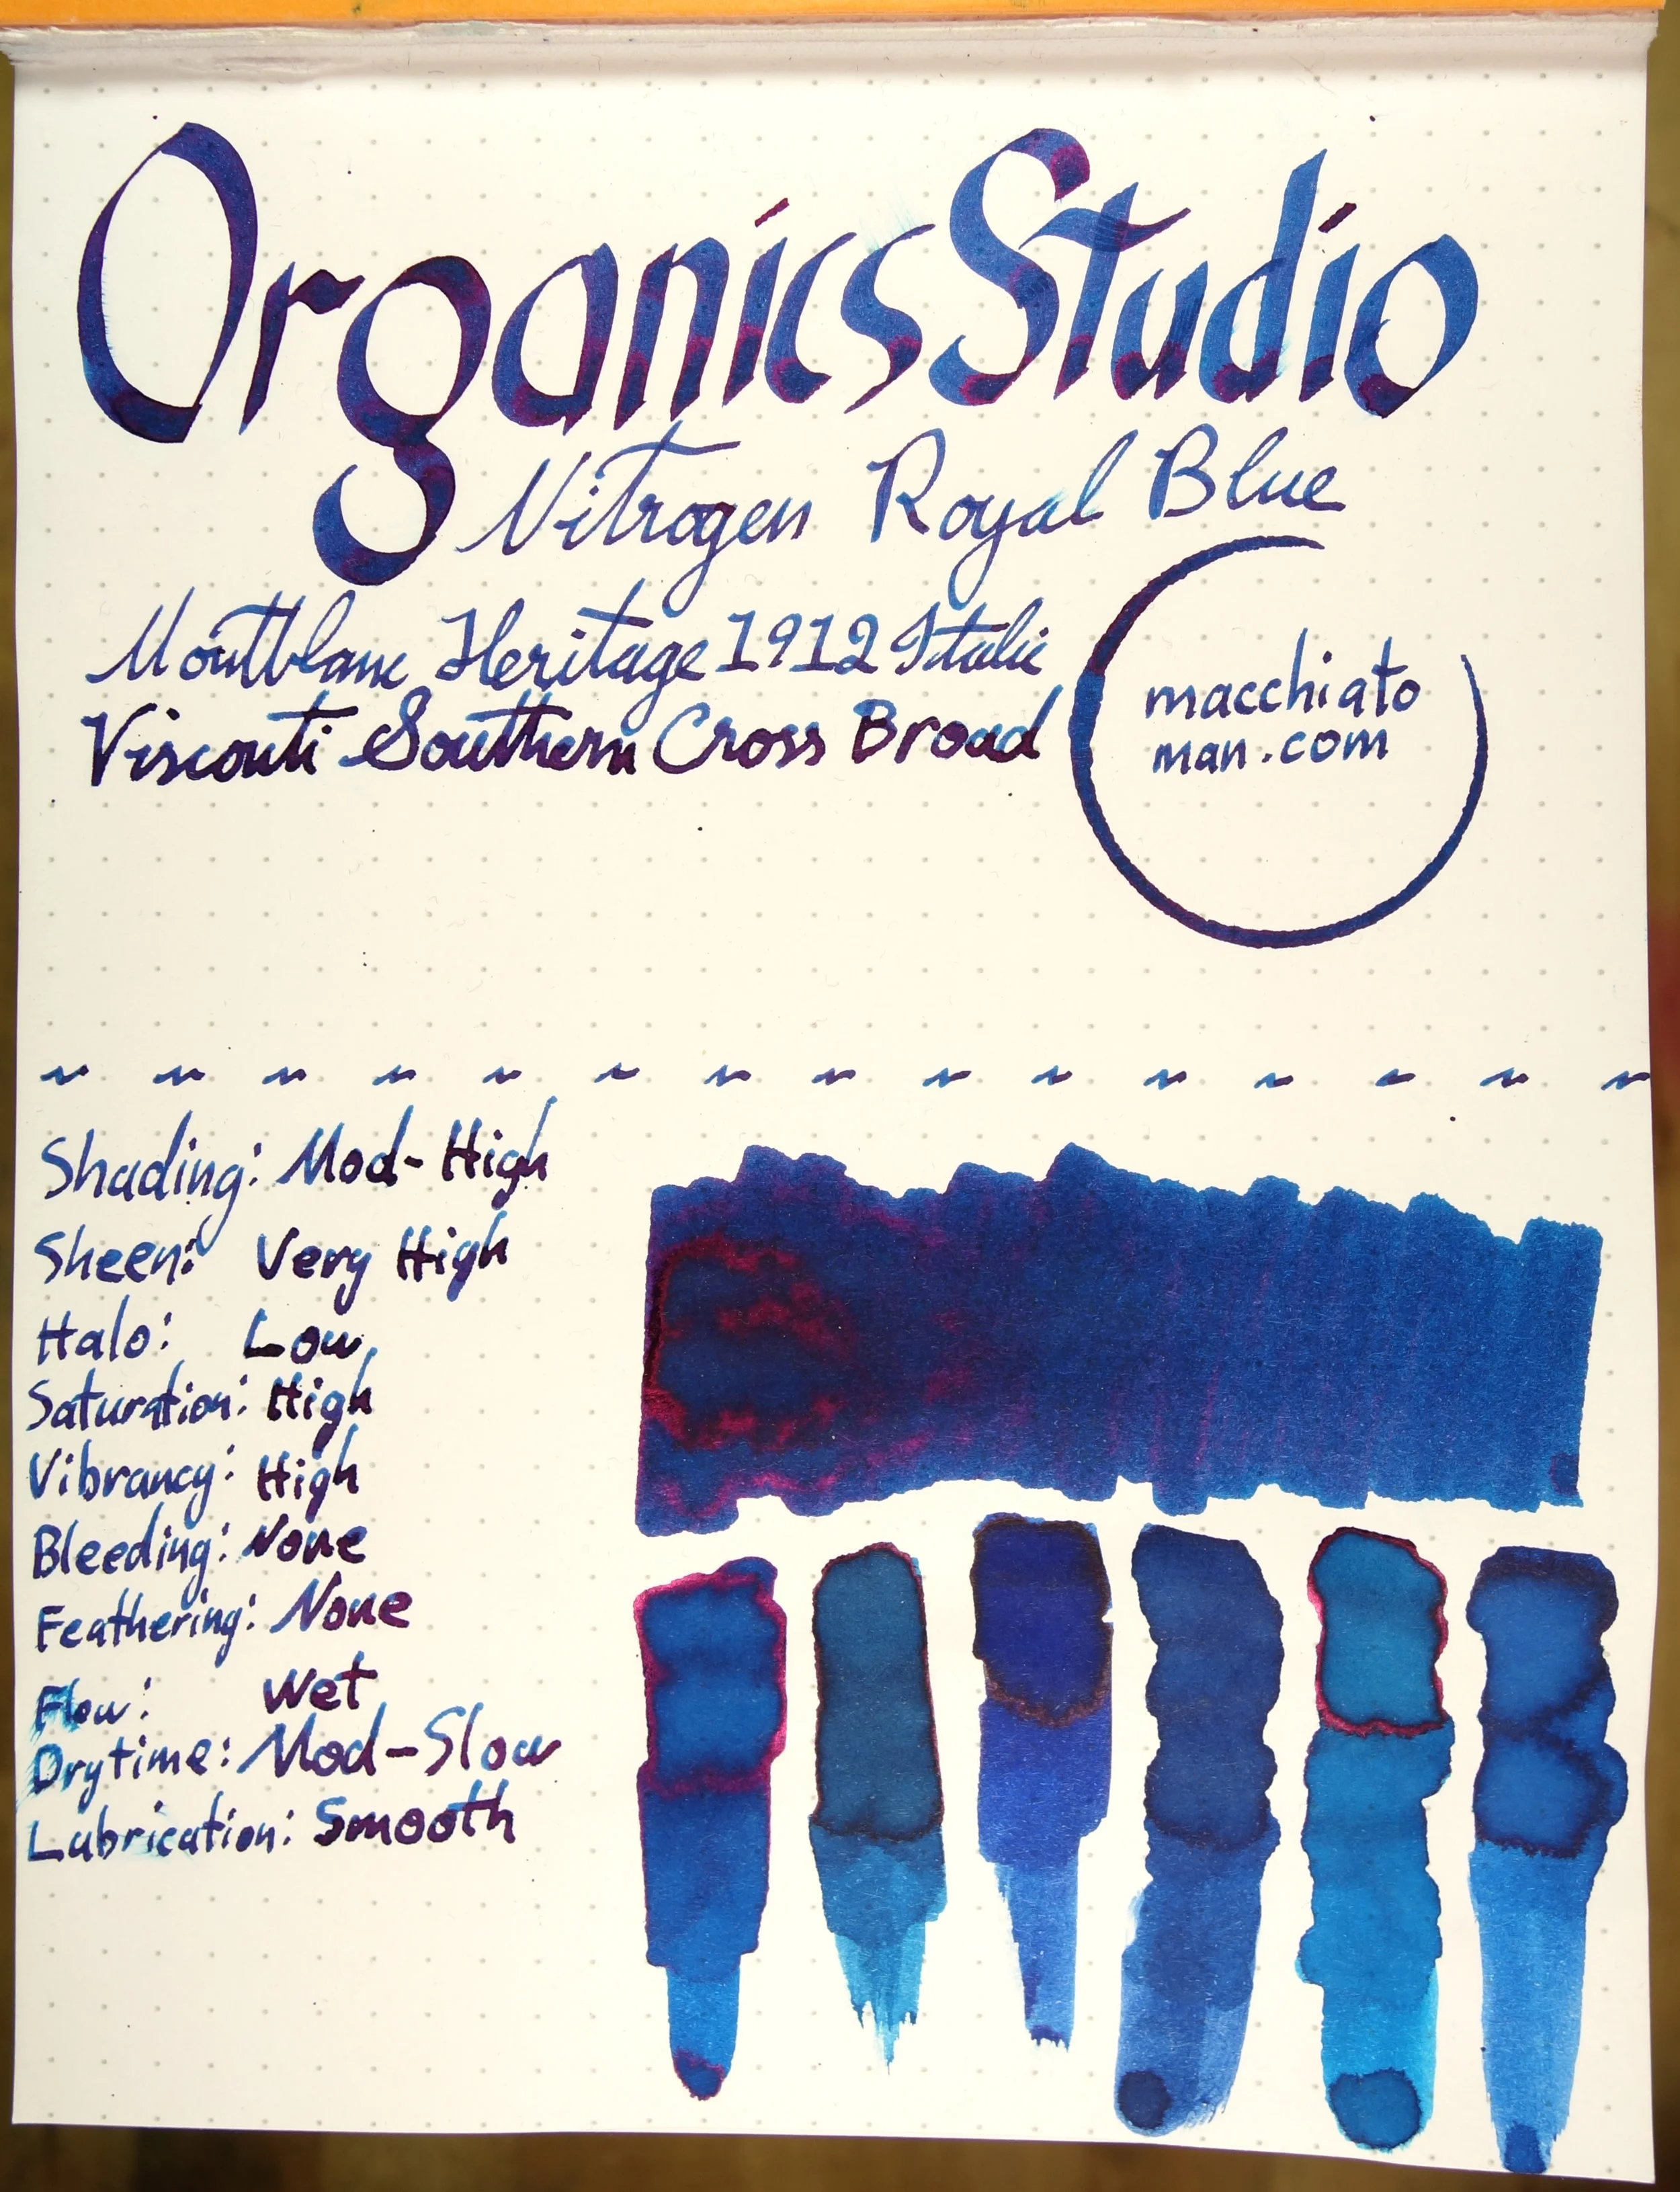 Organics Studio
Nitrogen Royal Blue
Montblanc Heritage 1912 Italic
Visconti Southern Cross Broad
macchiato
man.com
Shading: Mod-High
Sheen: Very High
Halo: Low
Saturation: High
Vibrancy: High
Bleeding: None
Feathering: None
Flow: Wet
Drytime: Mod-Slow
Lubrication: Smooth